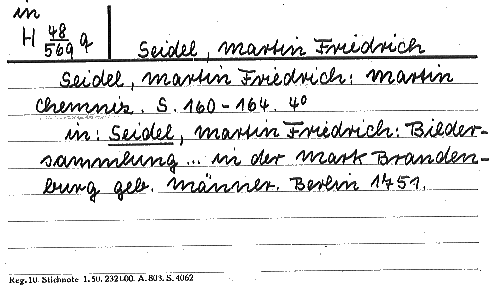 in
H 48/569 q Seidel, Martin Friedrich
Seidel, Martin Friedrich: Martin
Chemniz. S. 160-164. 4°
in: Seidel, Martin Friedrich: Bilder-
sammlung ... in der Mark Branden-
burg geb. Männer. Berlin 1751.
Reg. 10. Stichnote 1. 50. 2321.00. A. 803. S. 4062